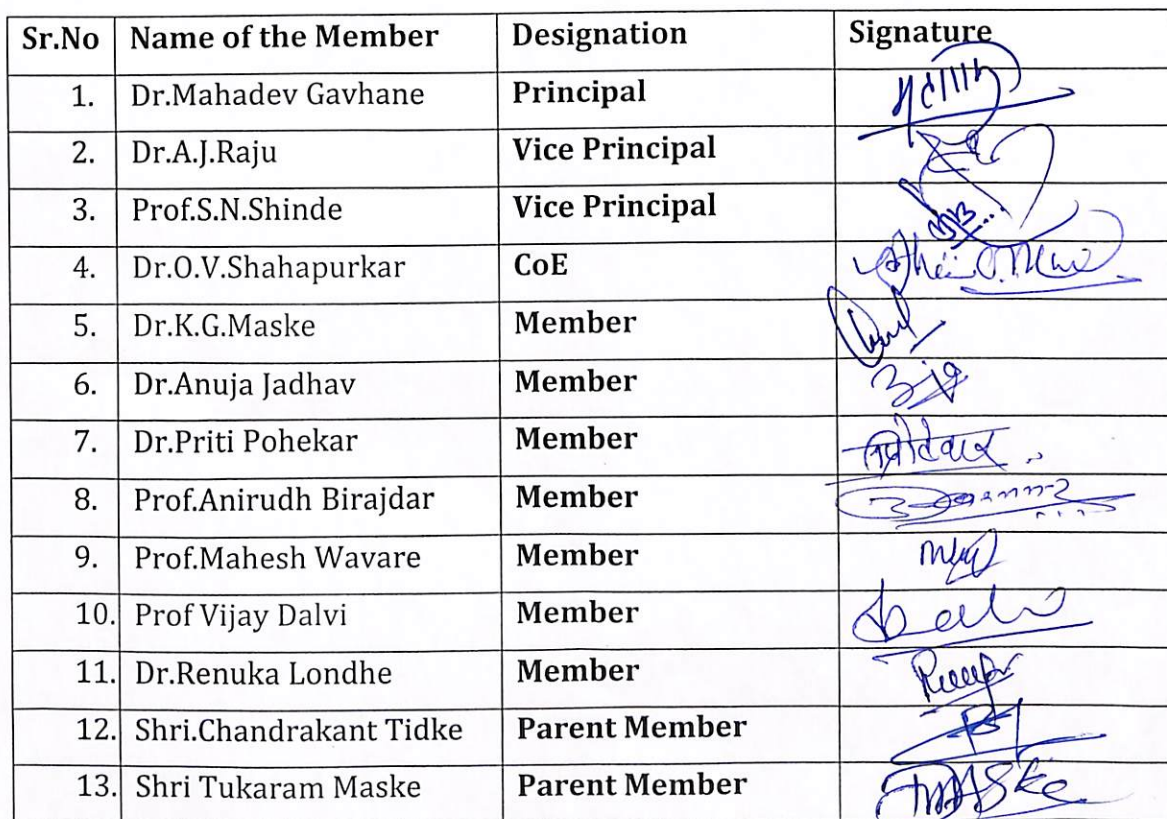 Sr.No Name of the Member Designation Signature
1. Dr.Mahadev Gavhane Principal
2. Dr.A.J.Raju Vice Principal
3. Prof.S.N.Shinde Vice Principal
4. Dr.O.V.Shahapurkar CoE
5. Dr.K.G.Maske Member
6. Dr.Anuja Jadhav Member
7. Dr.Priti Pohekar Member
8. Prof.Anirudh Birajdar Member
9. Prof.Mahesh Wavare Member
10. Prof Vijay Dalvi Member
11. Dr.Renuka Londhe Member
12. Shri.Chandrakant Tidke Parent Member
13. Shri Tukaram Maske Parent Member